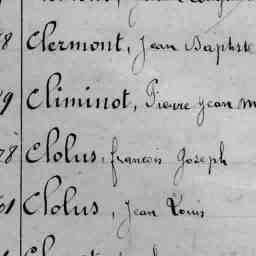 8 Clermont, Jean Baptiste
9 Climinot, Pierre Jean M
28 Clolus, françois Joseph
61 Clolus, Jean Louis